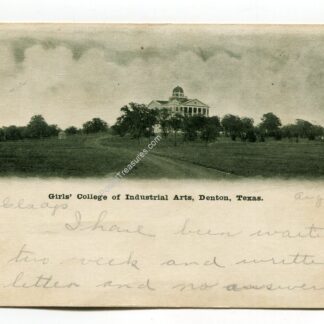 Girls' College of Industrial Arts, Denton, Texas.
I have been wait
two week and writte
letter and no answer